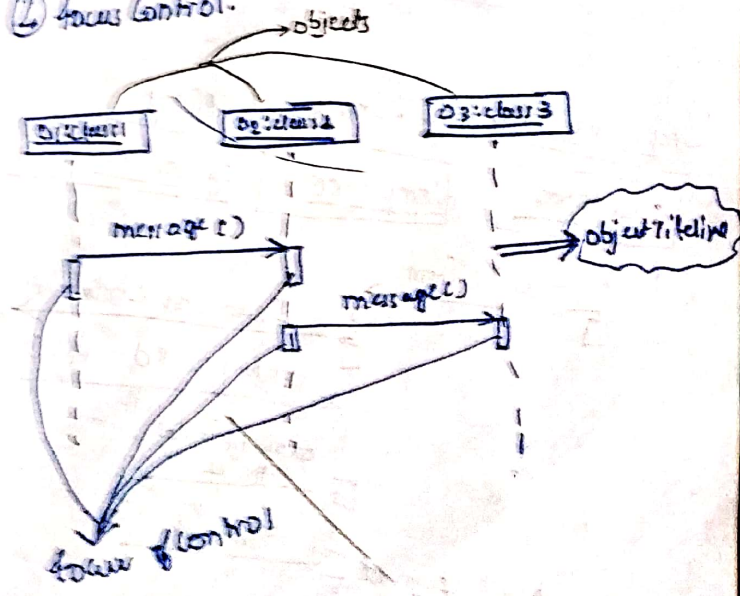 2 focus control.
objects
O1:class1
O2:class2
O3:class3
message()
object lifeline
message()
focus of control